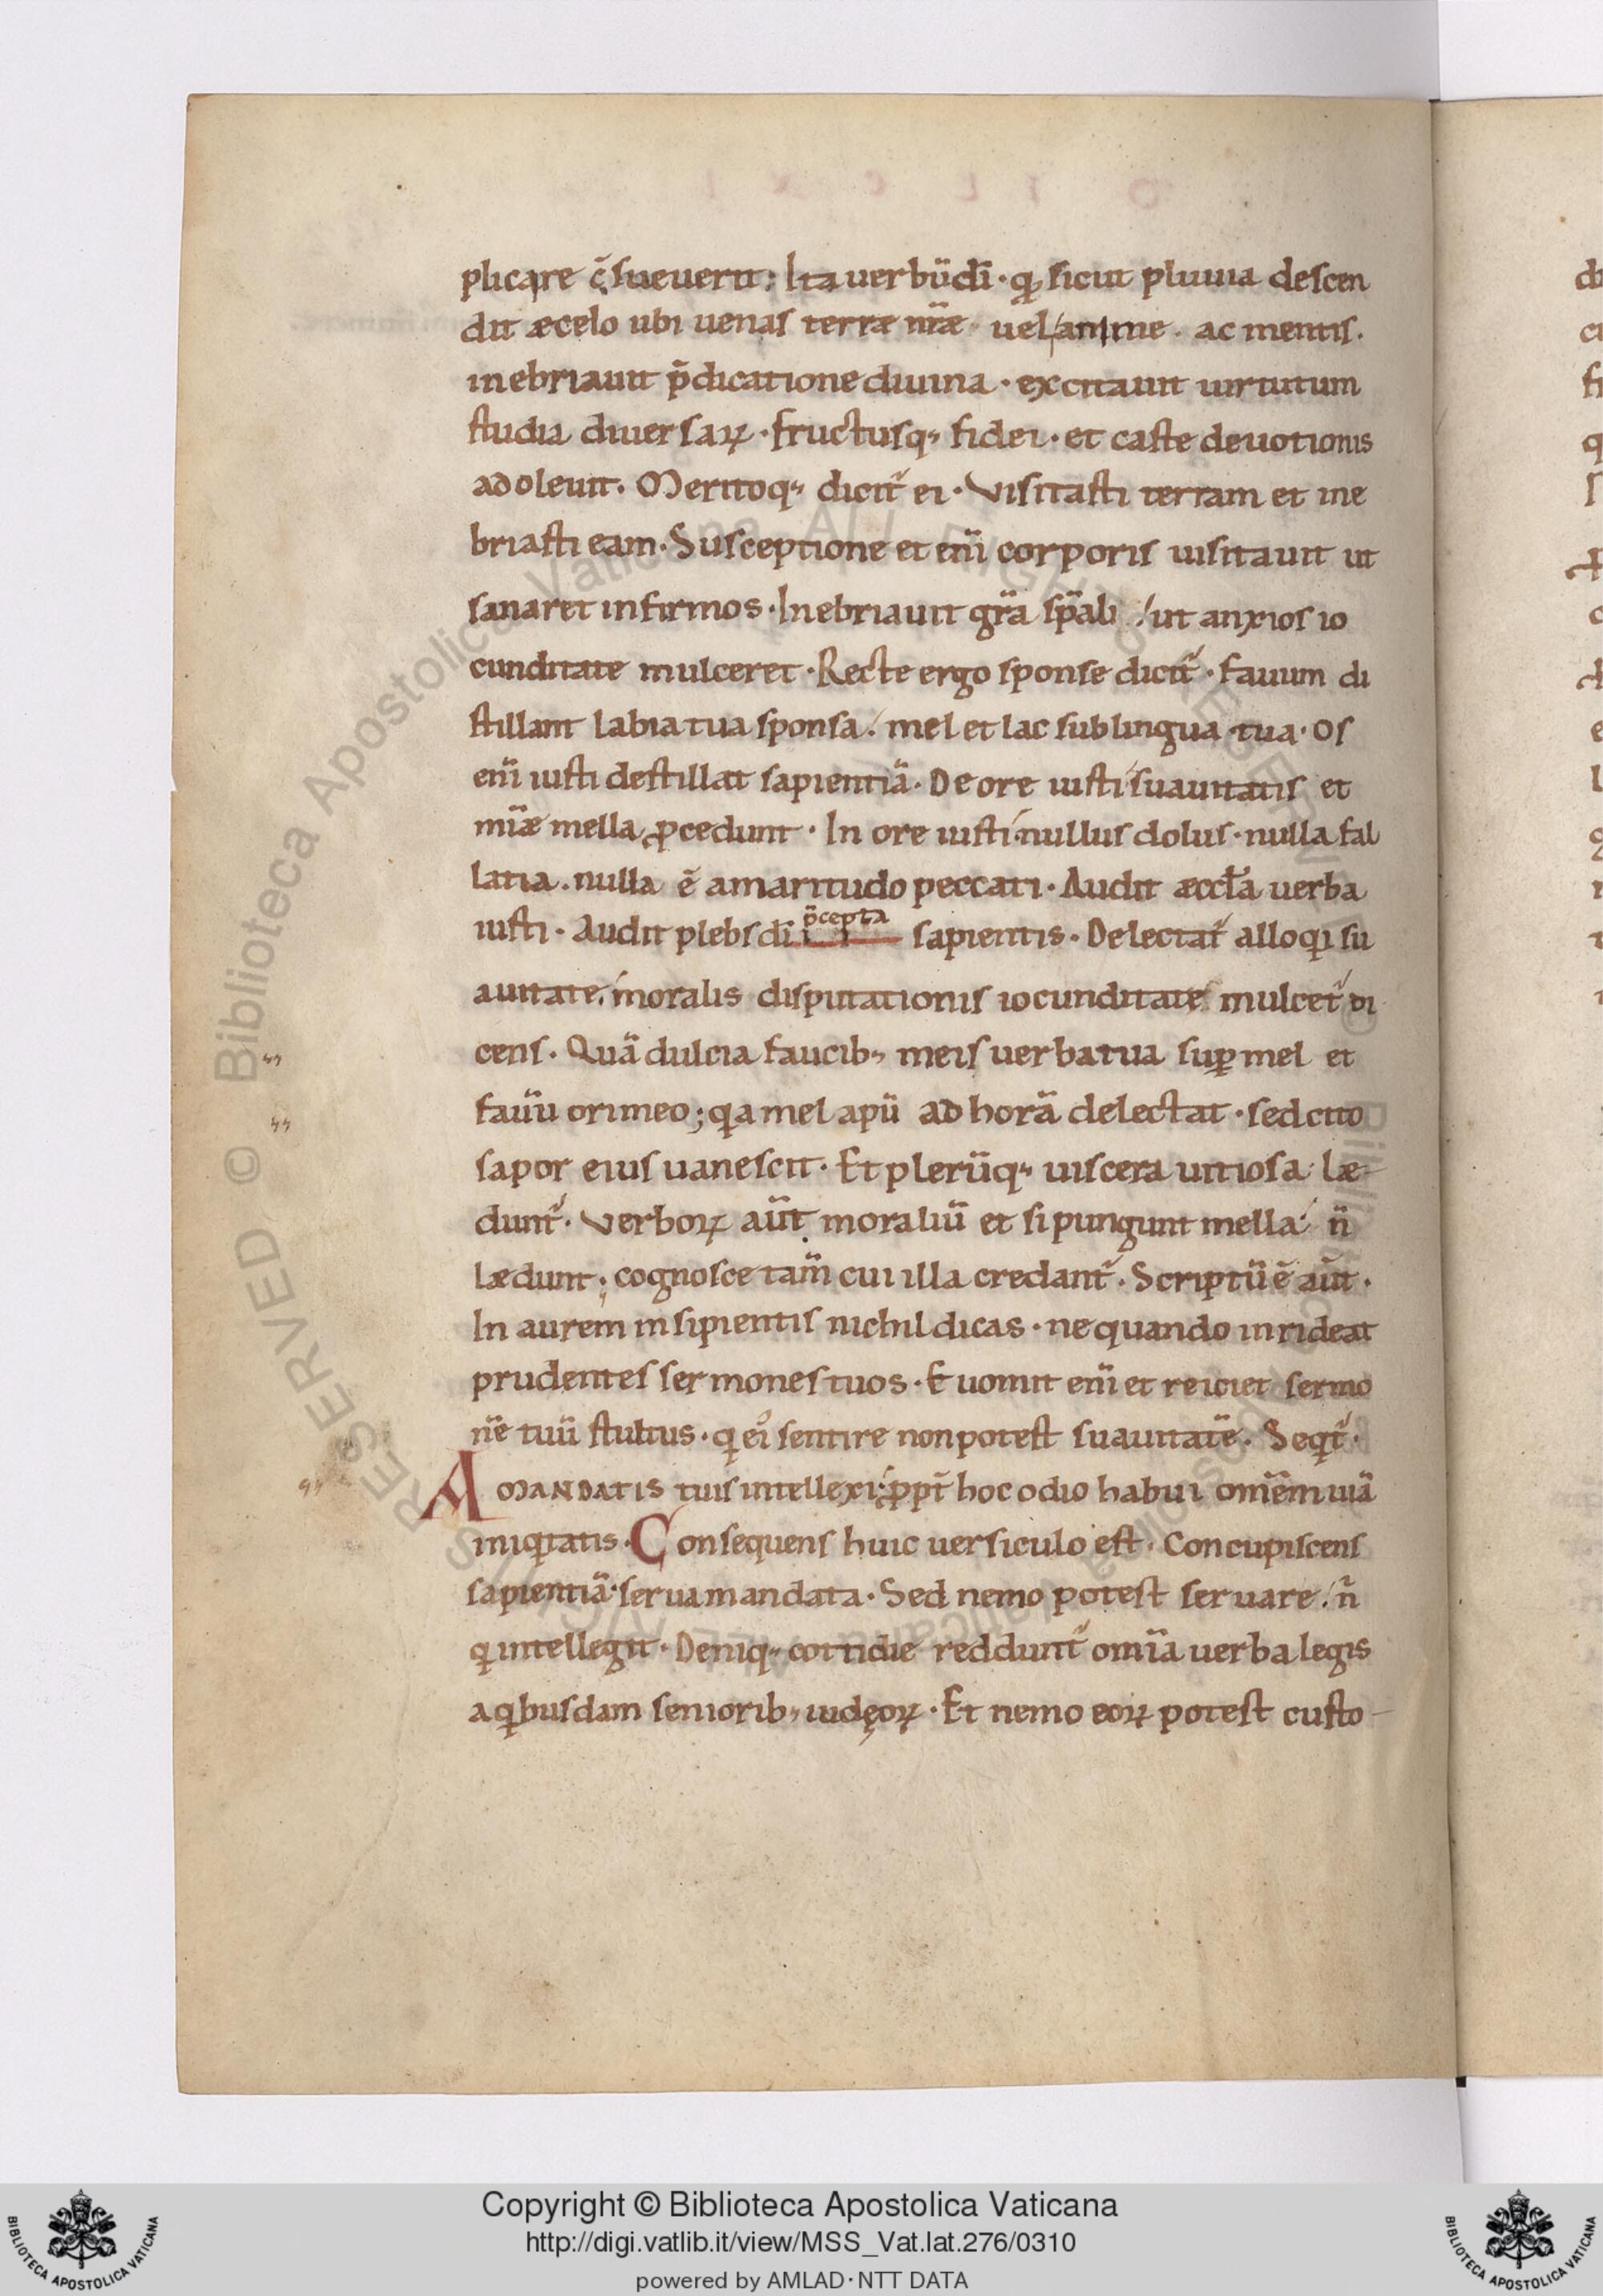 plicare c̄sueuerit; Ita uerbū dī · qđ sicut pluuia descen
dit æcelo ubi uenas terræ nr̄æ uel anime · ac mentis ·
inebriauit p̄dicatione diuina · excitauit uirtutum
studia diuersaꝝ · fructusq; fidei · et caste deuotionis
adoleuit · Meritoq; dicit̄ ei · Visitasti terram et ine
briasti eam · Susceptione et eni̅ corporis uisitauit ut
sanaret infirmos · Inebriauit gr̄a sp̄ali ut anxios io
cunditate mulceret · Recte ergo sponse dicit̄ · fauum di
stillant labia tua sponsa · mel et lac sub lingua tua · Os
eni̅ iusti destillat sapientiā · De ore iusti suauitatis et
mīæ mella ꝓcedunt · In ore iusti nullus dolus · nulla fal
latia · nulla ē amaritudo peccati · Audit æccl̄a uerba
iusti · Audit plebs dī p̄cepta sapientis · Delectat̄ alloqi su
auitate · moralis disputationis iocunditate mulcet̄ di
cens · Quā dulcia faucib; meis uerba tua sup̱ mel et
fauū ori meo; qa mel apū ad horā delectat · sed cito
sapor eius uanescit · Et plerūq; uiscera uitiosa læ
dunt̄ · Verboꝝ aūt moraliū et si pungunt mella n̄
lædunt; cognosce tam̄ cui illa credant̄ · Scriptū ē aūt ·
In aurem insipientis nichil dicas · ne quando inrideat
prudentes sermones tuos · Euomit eni̅ et reiciet sermo
nē tuū stultus · q ei sentire non potest suauitatē · Seqt̄ ·
A MANDATIS tuis intellexi; ꝓpt̄ hoc odio habui omēm uiā
iniqtatis · Consequens huic uersiculo est · Concupiscens
sapientiā · serua mandata · Sed nemo potest seruare n̄
q intellegit · Deniq; cottidie reddunt̄ omīa uerba legis
a qbusdam seniorib; iudęoꝝ · Et nemo eoꝝ potest custo
RESERVED © Biblioteca Apostolica Vaticana. ALL RIGHTS RESERVED
Copyright © Biblioteca Apostolica Vaticana
http://digi.vatlib.it/view/MSS_Vat.lat.276/0310
powered by AMLAD·NTT DATA
BIBLIOTECA APOSTOLICA VATICANA
BIBLIOTECA APOSTOLICA VATICANA